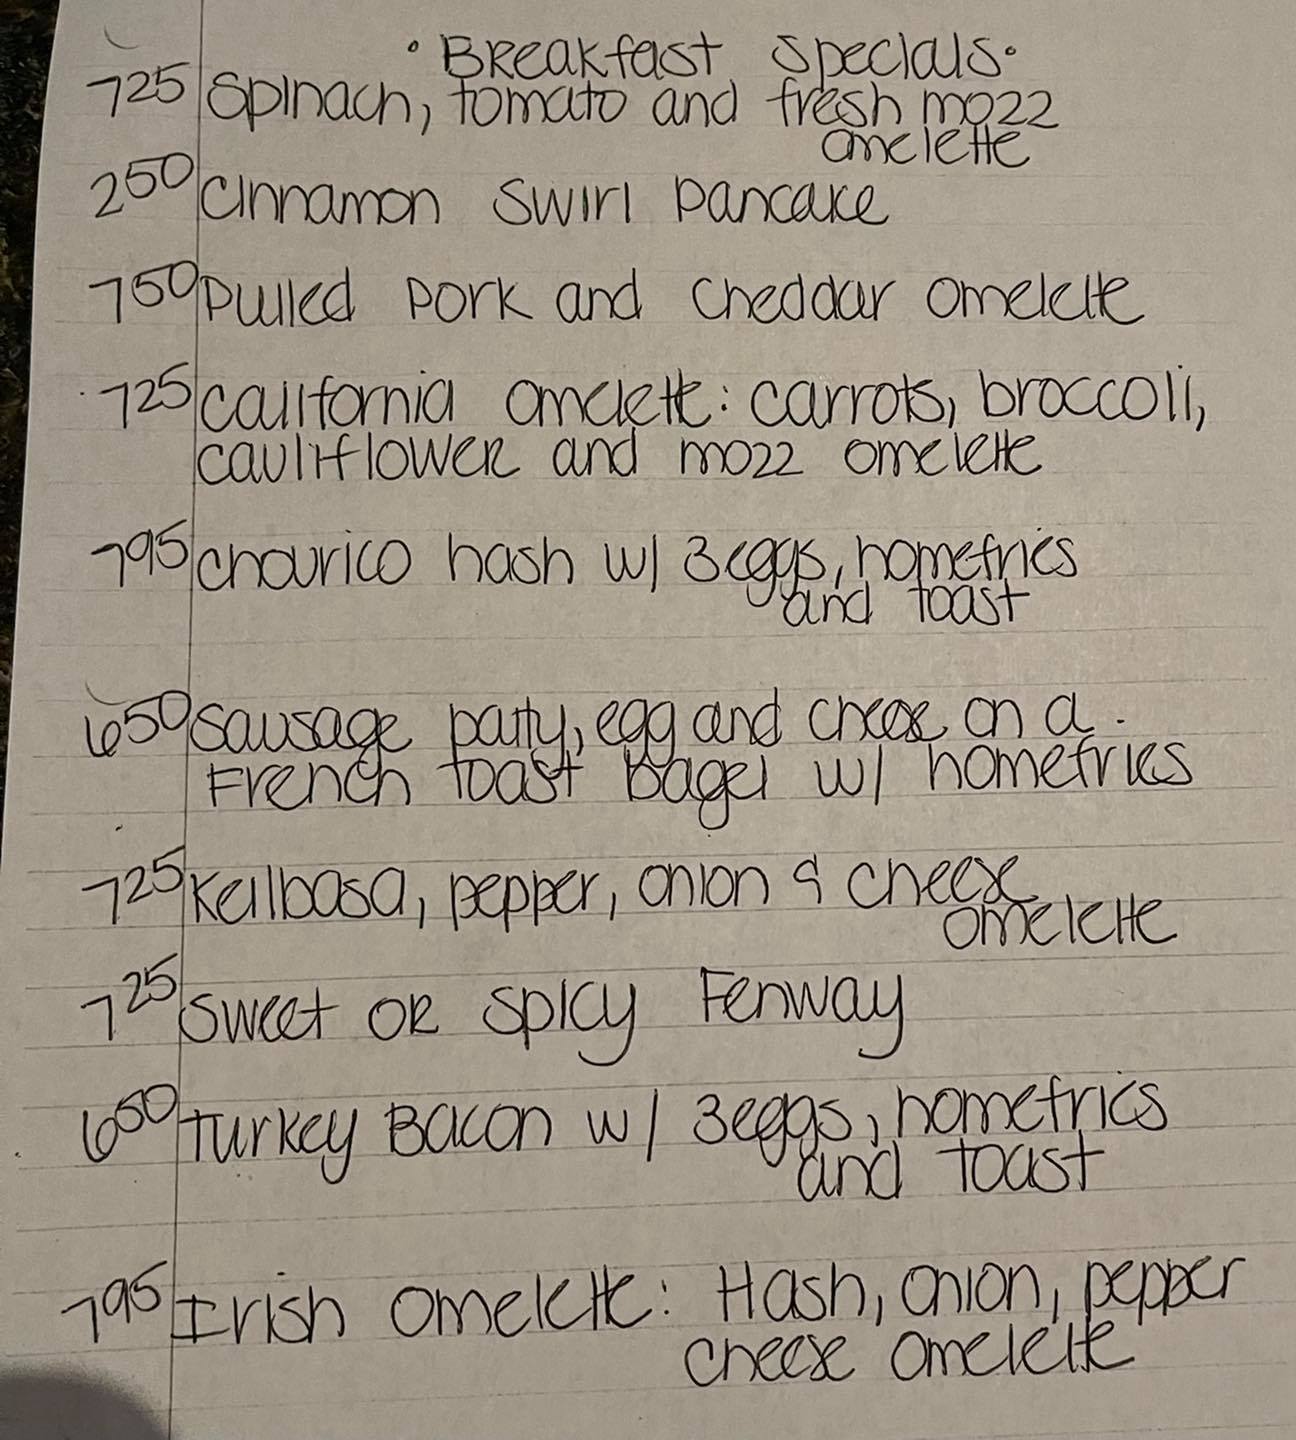 · Breakfast Specials ·
725 Spinach, tomato and fresh mozz
omelette
250 Cinnamon Swirl pancake
750 pulled pork and cheddar omelette
725 California omelette: carrots, broccoli,
cauliflower and mozz omelette
795 chourico hash w/ 3 eggs, homefries
and toast
650 sausage patty, egg and cheese on a
French toast bagel w/ homefries
725 Keilbasa, pepper, onion & cheese
omelette
725 Sweet OR Spicy Fenway
650 turkey Bacon w/ 3 eggs, homefries
and toast
795 Irish Omelette: Hash, onion, pepper
cheese omelette